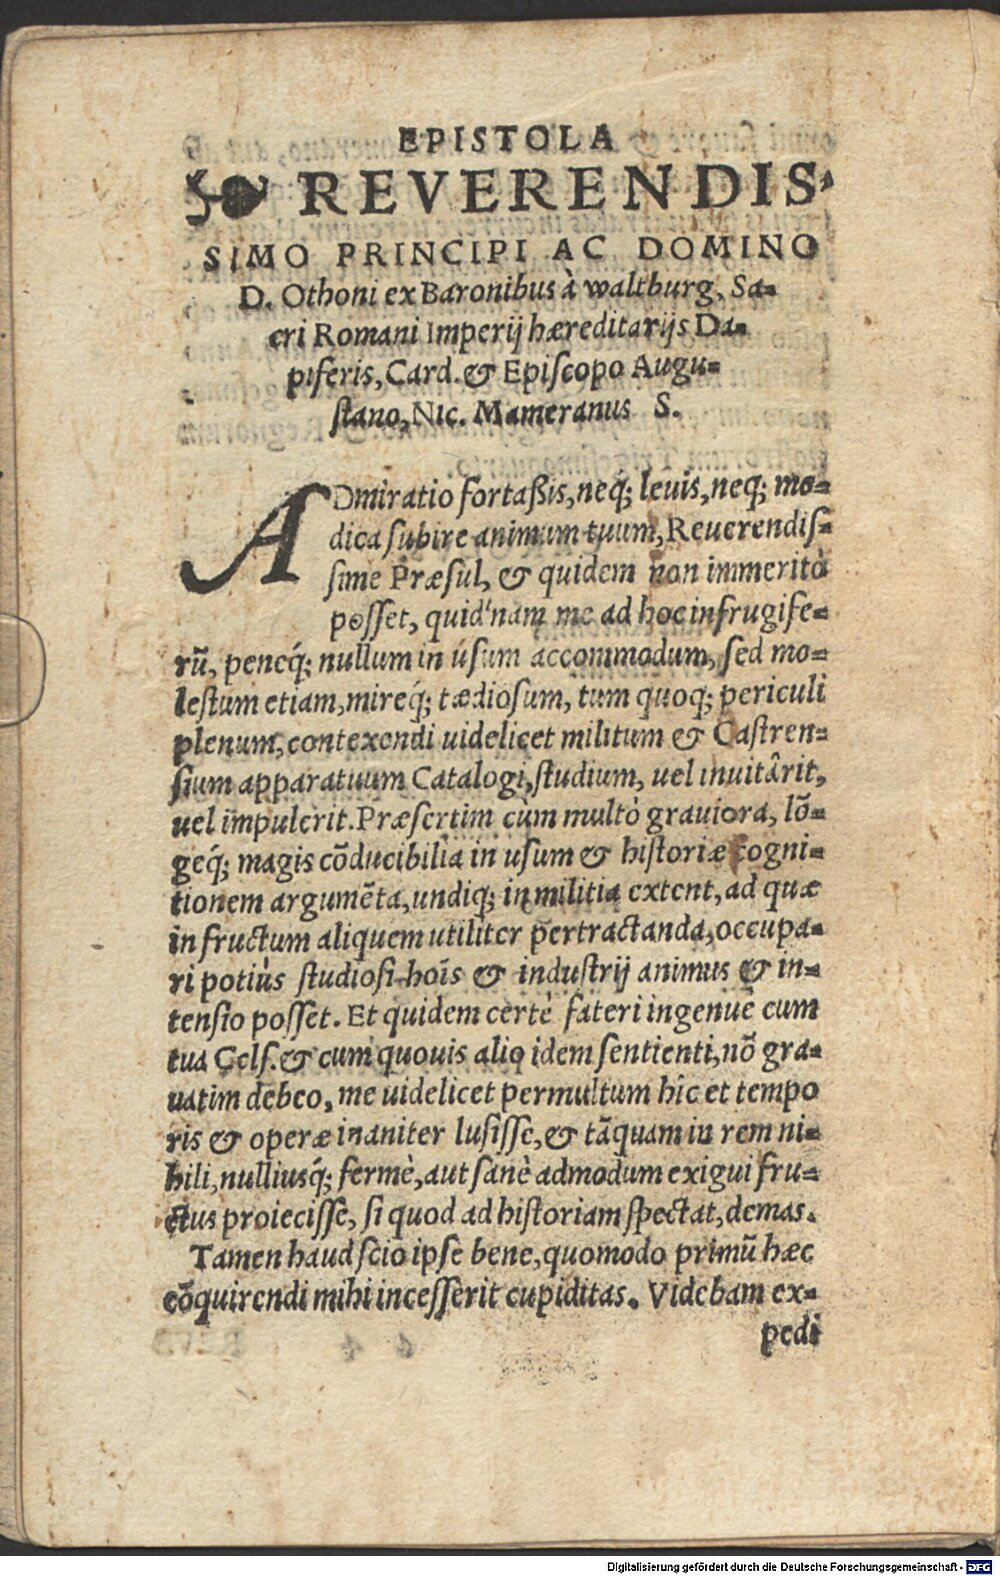 EPISTOLA
REVERENDIS-
SIMO PRINCIPI AC DOMINO
D. Othoni ex Baronibus à waltburg, Sa-
cri Romani Imperij hæreditarijs Da-
piferis, Card. & Episcopo Augu-
stano, Nic. Mameranus S.
ADmiratio fortaßis, neq́; leuis, neq; mo-
dica subire animum tuum, Reuerendis-
sime Præsul, & quidem non immeritò
posset, quid'nam me ad hoc infrugife-
rũ, peneq́; nullum in usum accommodum, sed mo-
lestum etiam, mireq́; tædiosum, tum quoq; periculi
plenum, contexendi uidelicet militum & Castren-
sium apparatuum Catalogi, studium, uel inuitârit,
uel impulerit. Præsertim cùm multò grauiora, lõ-
geq́; magis cõducibilia in usum & historiæ cogni-
tionem argumẽta, undiq; in militia extent, ad quæ
in fructum aliquem utiliter pertractanda, occupa-
ri potiùs studiosi hoĩs & industrij animus & in-
tensio posset. Et quidem certè fateri ingenuè cum
tua Cels. & cum quouis alio idem sentienti, nõ gra-
uatim debeo, me uidelicet permultum hîc et tempo
ris & operæ inaniter lusisse, & tãquam in rem ni-
hili, nulliusq́; fermè, aut sanè admodum exigui fru-
ctus proiecisse, si quod ad historiam spectat, demas.
Tamen haud scio ipse bene, quomodo primũ hæc
cõquirendi mihi incesserit cupiditas. Videbam ex-
pedi
Digitalisierung gefördert durch die Deutsche Forschungsgemeinschaft - DFG